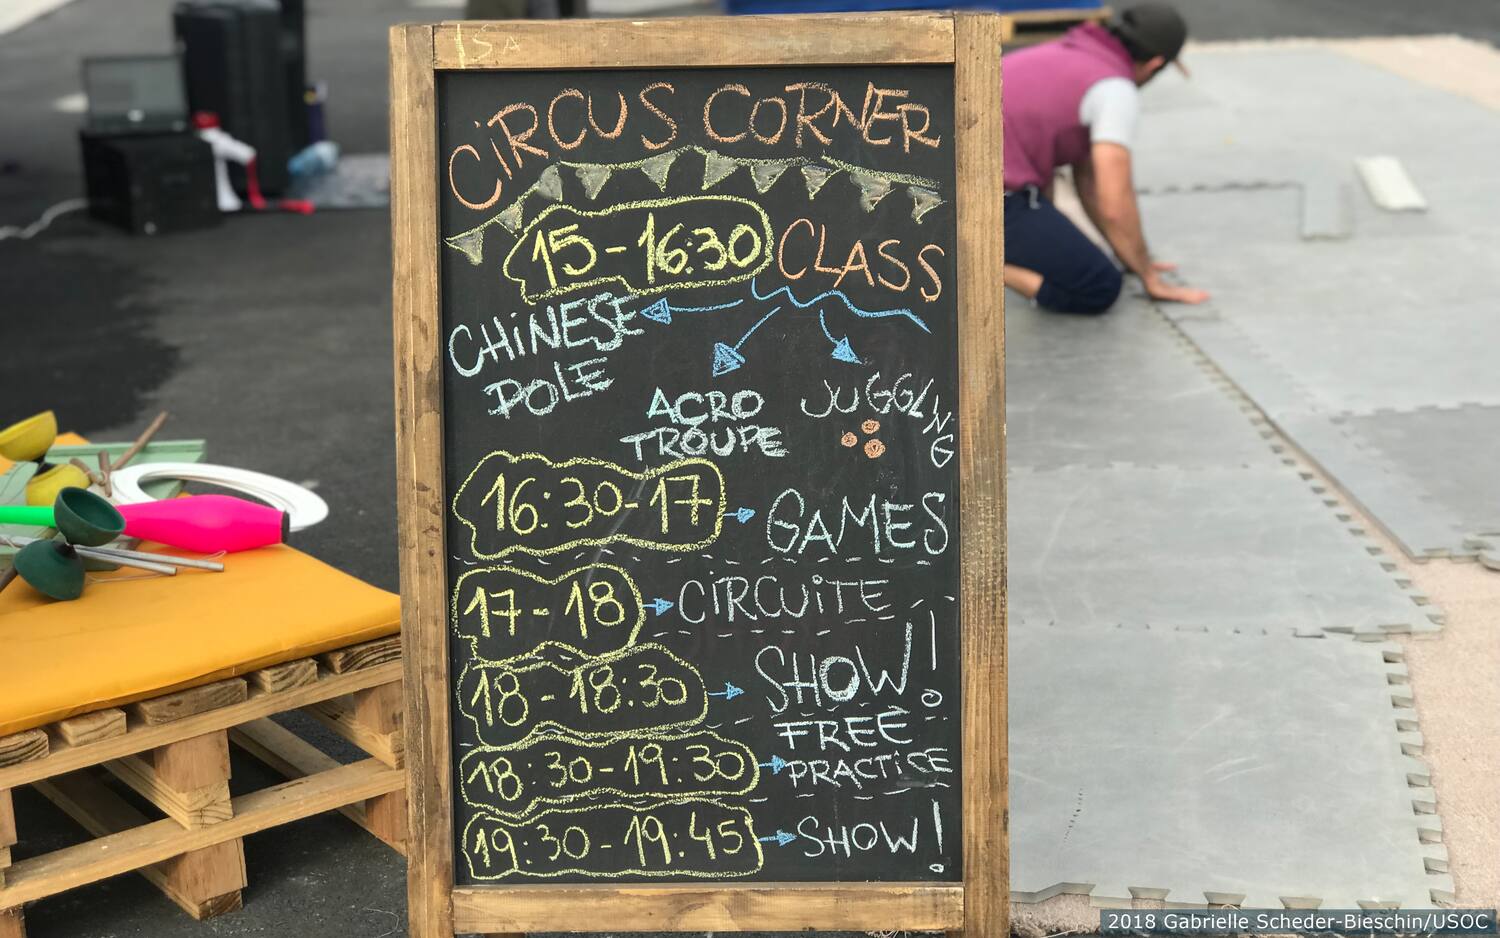 CIRCUS CORNER
15-16:30 CLASS
CHINESE
POLE
ACRO
TROUPE
JUGGLING
16:30-17 GAMES
17-18 CIRCUITE
18-18:30 SHOW!
18:30-19:30 FREE
PRACTICE
19:30-19:45 SHOW!
2018 Gabrielle Scheder-Bieschin/USOC